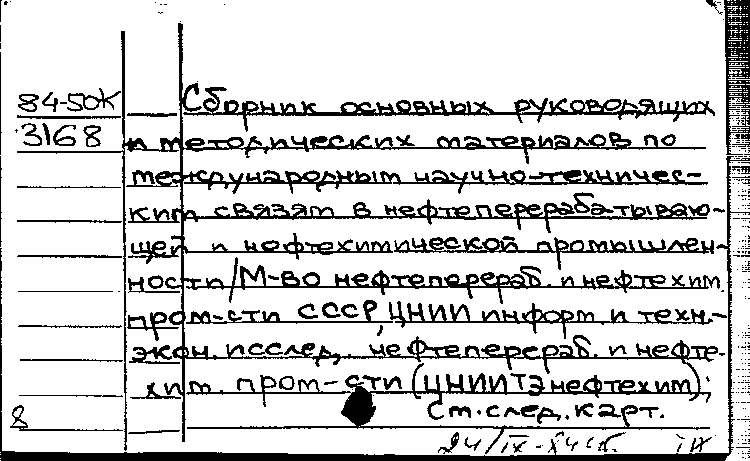 84-50К
3168
Сборник основных руководящих
и методических материалов по
международным научно-техничес-
ким связям в нефтеперерабатываю-
щей и нефтехимической промышлен-
ности/М-во нефтеперераб. и нефтехим.
пром-сти СССР, ЦНИИ информ. и техн.-
экон. исслед. нефтеперераб. и нефте-
хим. пром-сти (ЦНИИТЭнефтехим);
См. след. карт.
8
24/IX-84